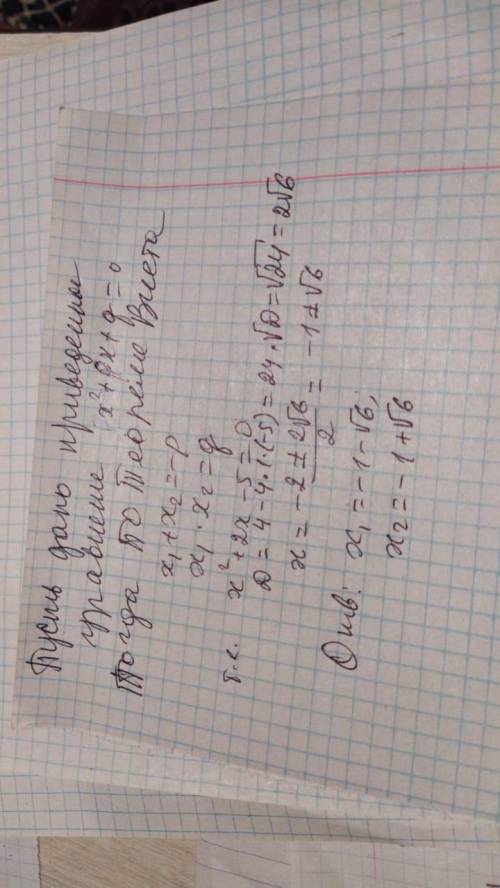 Пусть дано приведенное
уравнение x²+px+q=0
Тогда по теореме Виета
x₁+x₂=-p
x₁·x₂=q
т.е. x²+2x-5=0
D=4-4·1·(-5)=24·√D=√24=2√6
x=(-2±2√6)/2=-1±√6
Отв: x₁=-1-√6;
x₂=-1+√6